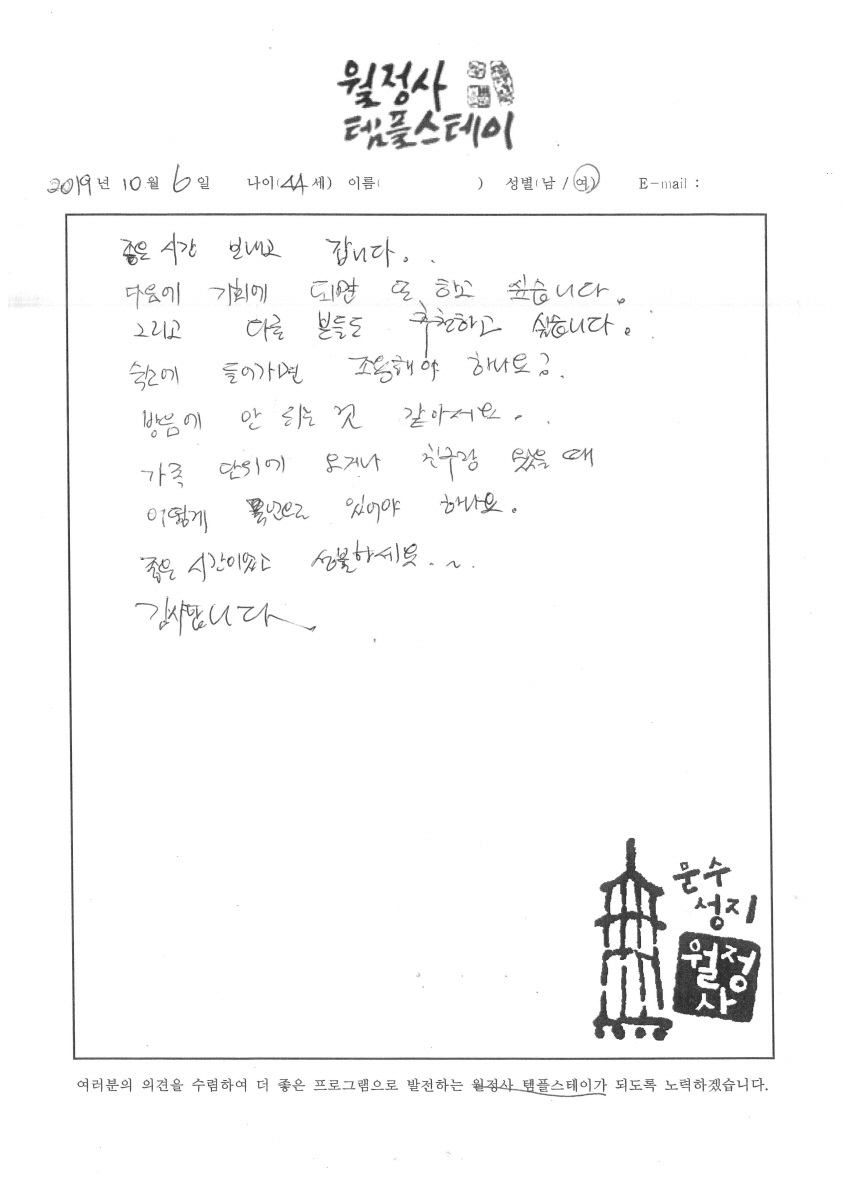 월정사
템플스테이
2019년 10월 6일 나이(44세) 이름( ) 성별(남 / 여) E-mail :
좋은 시간 보내고 갑니다..
다음에 기회에 되면 또 하고 싶습니다.
그리고 다른 분들도 추천하고 싶습니다.
숙소에 들어가면 조용해야 하나요?.
방음에 안 되는 것 같아서요..
가족 단위에 오거나 친구랑 왔을 때
어떻게 있어야 하나요.
좋은 시간이었고 성불하세요..~.
감사합니다.
문수
성지
월정
사
여러분의 의견을 수렴하여 더 좋은 프로그램으로 발전하는 월정사 템플스테이가 되도록 노력하겠습니다.